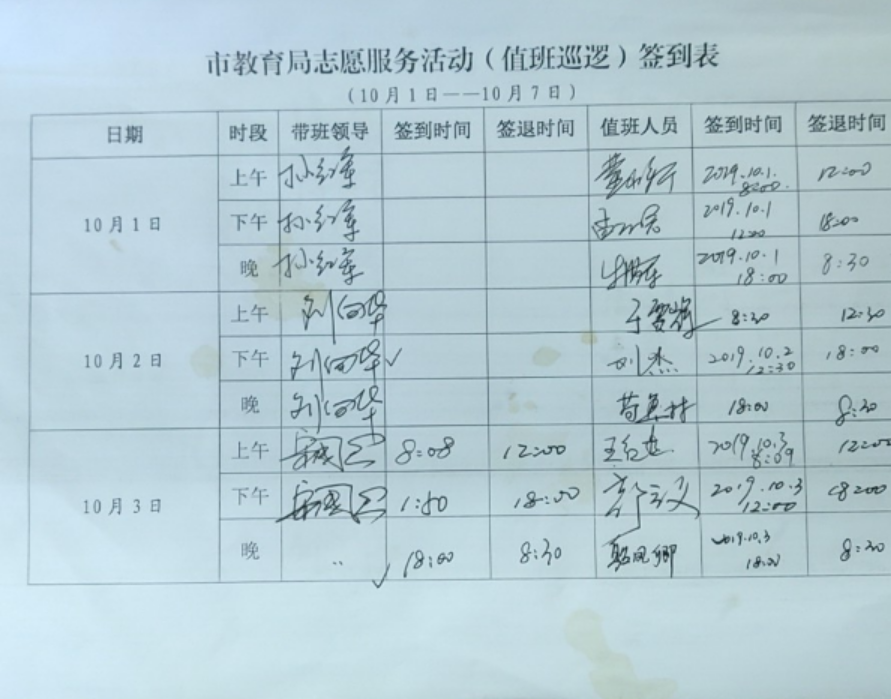 市教育局志愿服务活动（值班巡逻）签到表
（10月1日——10月7日）
日期 时段 带班领导 签到时间 签退时间 值班人员 签到时间 签退时间
10月1日
上午 孙红军 2019.10.1. 8:00. 12:00
下午 孙红军 2019.10.1 12:00 18:00
晚 孙红军 2019.10.1 18:00 8:30
10月2日
上午 刘向华 8:30 12:30
下午 刘向华 刘杰 2019.10.2 12:30 18:00
晚 刘向华 18:00 8:30
10月3日
上午 8:08 12:00 2019.10.3 8:09 12:00
下午 18:00 2019.10.3 12:00
晚 〃 18:00 8:30 2019.10.3 18:00 8:30